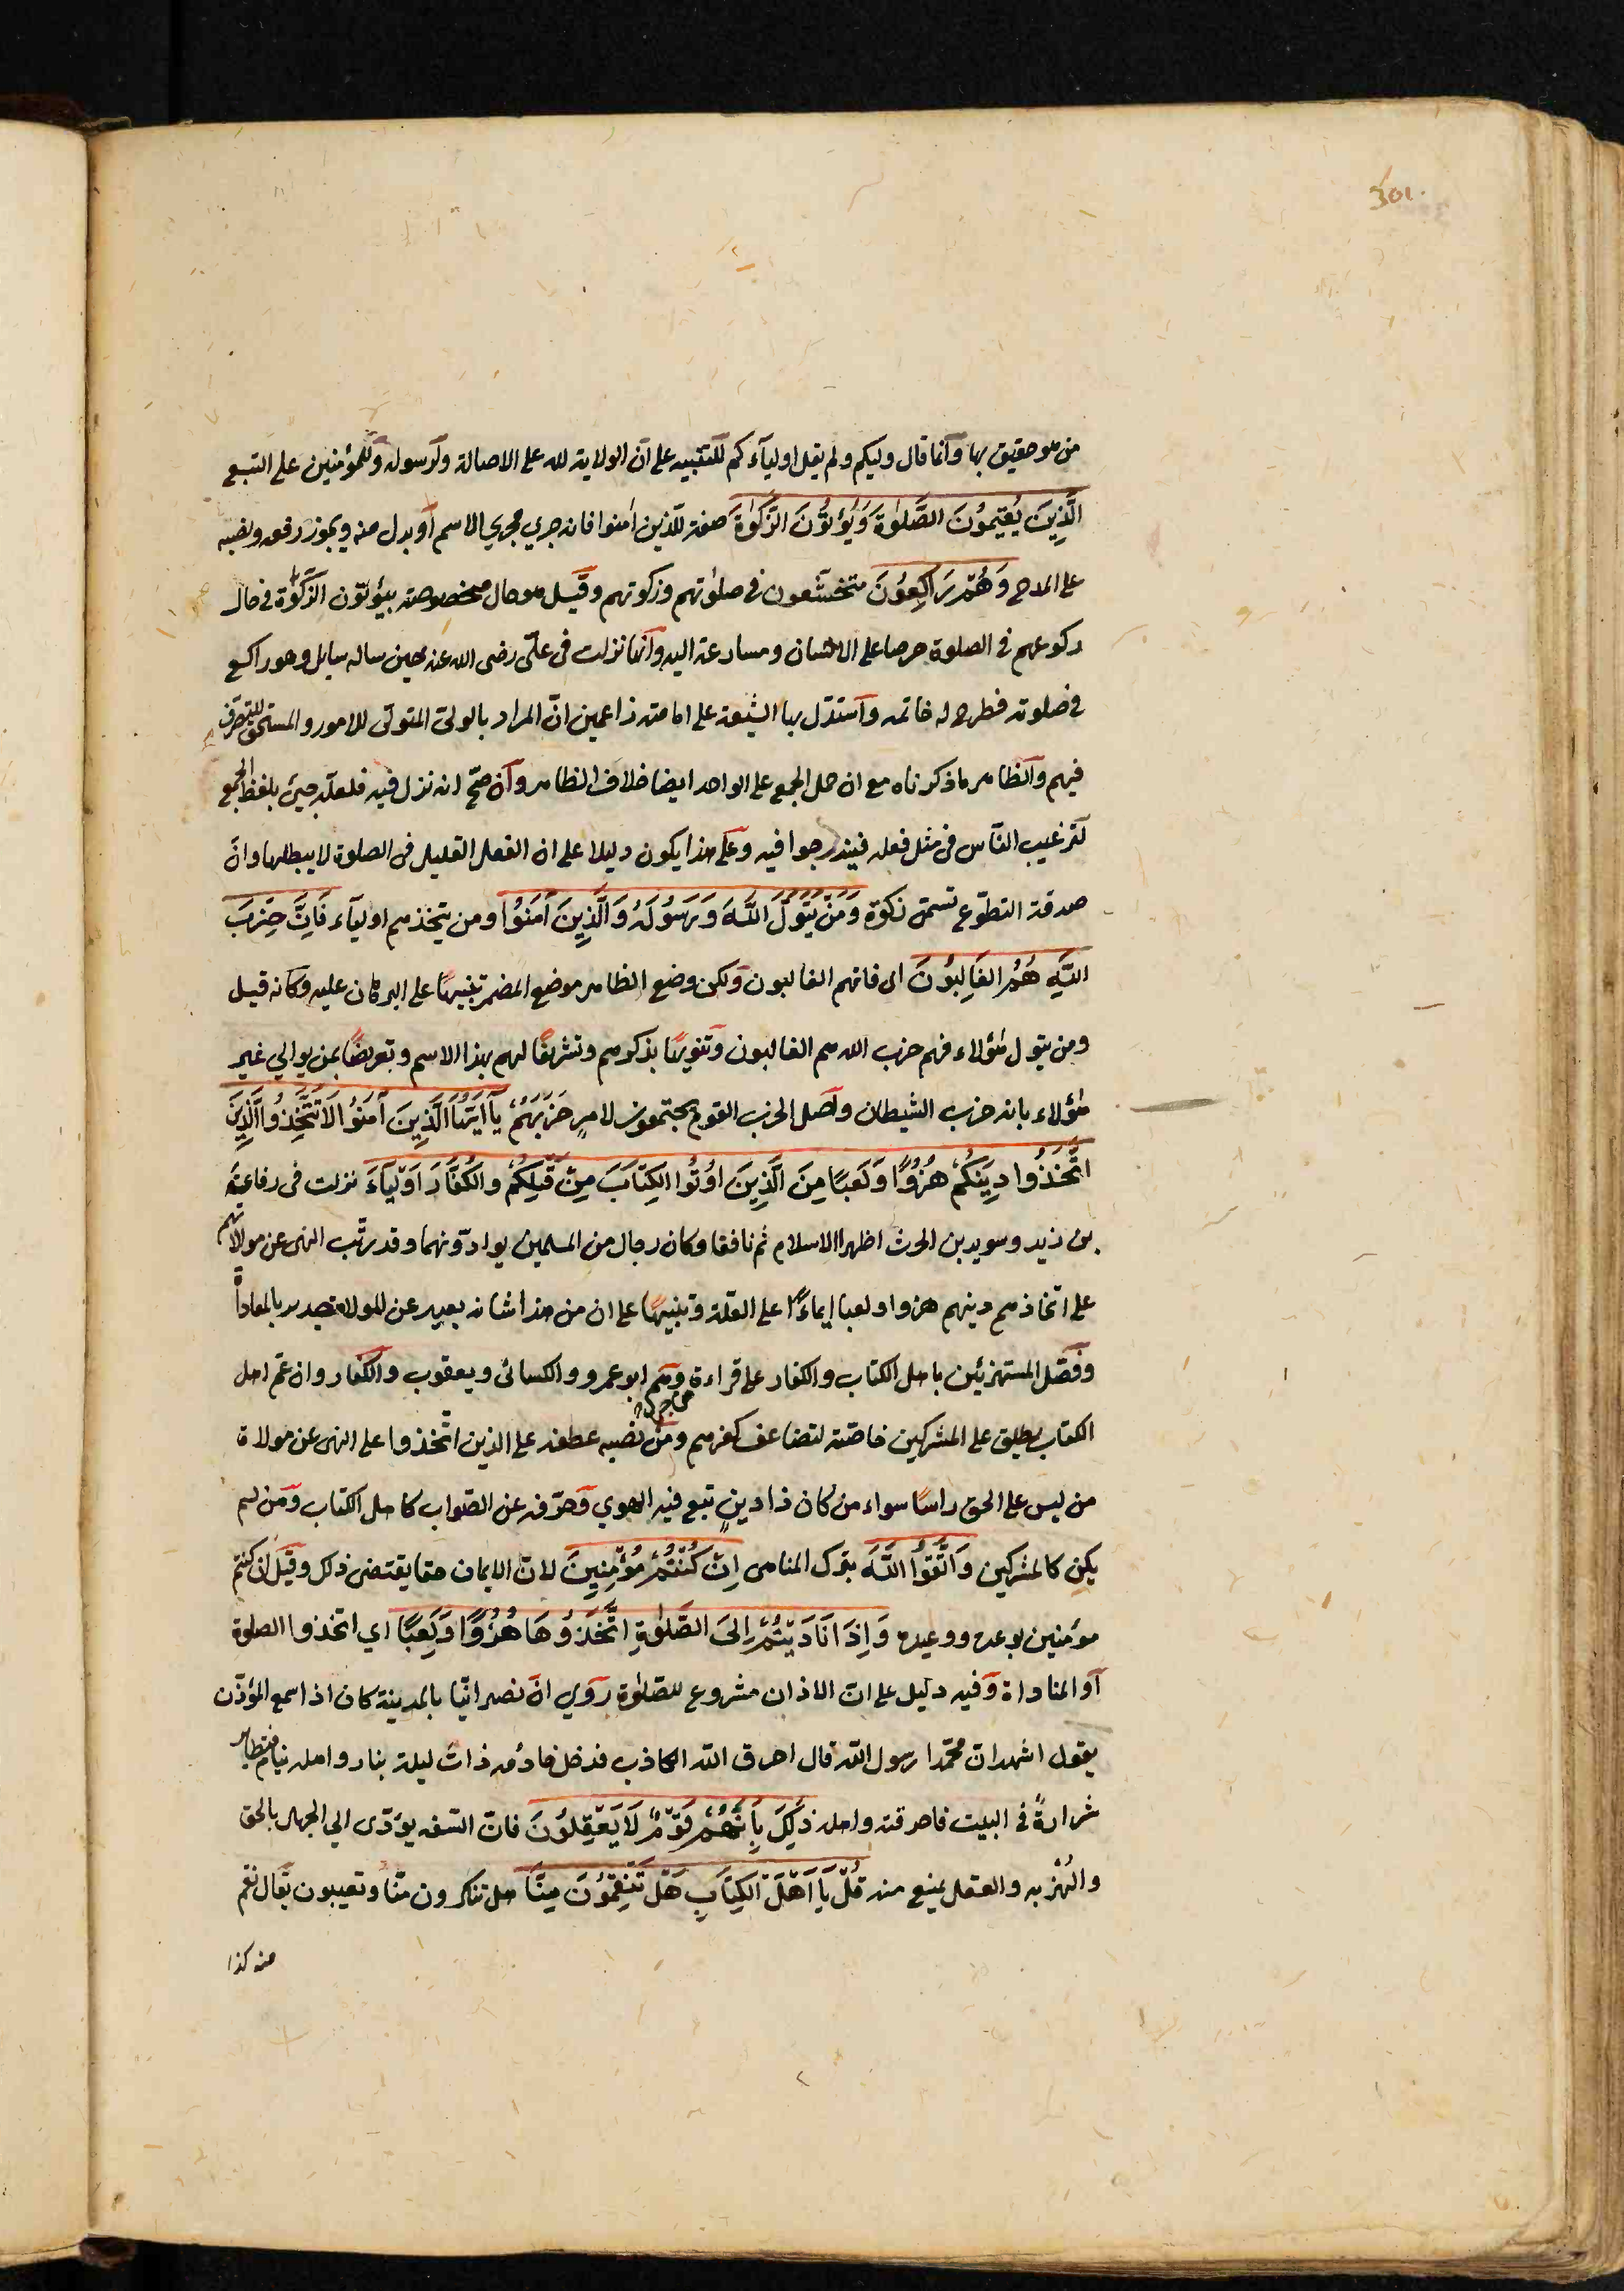 301
من هو حقيق بها وانما قال وليكم ولم يقل اوليآءكم للتنبيه على ان الولاية لله على الاصالة ولرسوله وللمؤمنين على التبع
الَّذِينَ يُقِيمُونَ الصَّلٰوةَ وَيُؤْتُونَ الزَّكٰوةَ صفة للذين امنوا فانه جري مجري الاسم او بدل منه ويجوز رفعه ونصبه
على المدح وَهُمْ رَاكِعُونَ متخشعون في صلوتهم وزكوتهم وقيل هو حال مخصوصة بيؤتون الزكوة في حال
ركوعهم في الصلوة حرصا على الاحسان ومسارعة اليه وانها نزلت في علىّ رضى الله عنه حين ساله سايل وهو راكع
في صلوته فطرح له خاتمه واستدل بها الشيعة على امامته زاعمين انّ المراد بالولىّ المتولّى للامور والمستحق للتصرف
فيهم والظاهر ما ذكرناه مع ان حمل الجمع على الواحد ايضا خلاف الظاهر وان صحّ انه نزل فيه فلعله جيئ بلفظ الجمع
لترغيب النّاس في مثل فعله فيندرجوا فيه وعلى هذا يكون دليلا على ان الفعل القليل في الصلوة لا يبطلها وانّ
صدقة التطوّع تسمى زكوة وَمَنْ يَتَوَلَّ اللَّهَ وَرَسُولَهُ وَالَّذِينَ آمَنُوا ومن يتخذهم اوليآء فَاِنَّ حِزْبَ
اللَّهِ هُمُ الغَالِبُونَ اى فانهم الغالبون ولكن وضع الظاهر موضع المضمر تنبيهًا على البرهان عليه وكانه قيل
ومن يتول هؤلاء فهم حزب الله وحزب الله هم الغالبون وتنويهًا بذكرهم وتشريفًا لهم بهذا الاسم وتعريضًا بمن يوالي غير
هؤلاء بانه حزب الشيطان واصل الحزب القوم يجتمعون لامرٍ حَزَبَهُمْ يَآ اَيُّهَا الَّذِينَ آمَنُوا لَا تَتَّخِذُوا الَّذِينَ
اتَّخَذُوا دِينَكُمْ هُزُوًا وَلَعِبًا مِنَ الَّذِينَ اُوتُوا الكِتَابَ مِنْ قَبْلِكُمْ وَالكُفَّارَ اَوْلِيَآءَ نزلت في رفاعة
بن زيد وسويد بن الحرث اظهرا الاسلام ثم نافقا وكان رجال من المسلمين يوادّونهما وقد رتّب النهى عن موالاتهم
على اتخاذهم دينهم هزوا ولعبا ايماءً على العلّة وتنبيهًا على ان من هذا شانه بعيد عن الموالاة جدير بالمعاداة
وفصّل المستهزئين باهل الكتاب والكفار على قراءة من جرّه وهم ابو عمرو والكسائى ويعقوب والكفار وان عمّ اهل
الكتاب يطلق على المشركين خاصّة لتضاعف كفرهم ومن نصبه عطفه على الذين اتّخذوا على ان النهى عن موالاة
من ليس على الحق راسًا سواء من كان ذا دينٍ تبع فيه الهوي وحرّفه عن الصّواب كاهل الكتاب ومن لم
يكن كالمشركين وَاتَّقُوا اللَّهَ بترك المناهى اِنْ كُنْتُمْ مُؤْمِنِينَ لانّ الايمان حقا يقتضى ذلك وقيل ان كنتم
مؤمنين بوعده ووعيده وَاِذَا نَادَيْتُمْ اِلَى الصَّلٰوةِ اتَّخَذُوهَا هُزُوًا وَلَعِبًا اي اتخذوا الصلوة
او المناداة وفيه دليل على انّ الاذان مشروع للصّلوة روي انّ نصرانيّا بالمدينة كان اذا سمع المؤذن
يقول اشهد انّ محمّدا رسول الله قال احرق الله الكاذب فدخل خادمه ذات ليلة بنار واهله نيام فتطاير
شرارةً في البيت فاحرقته واهله ذٰلِكَ بِاَنَّهُمْ قَوْمٌ لَا يَعْقِلُونَ فانّ السّفه يؤدّى الي الجهل بالحق
والهزء به والعقل يمنع منه قُلْ يَا اَهْلَ الكِتَابِ هَلْ تَنْقِمُونَ مِنَّآ هل تنكرون منّا وتعيبون يقال نقم
منه كذا